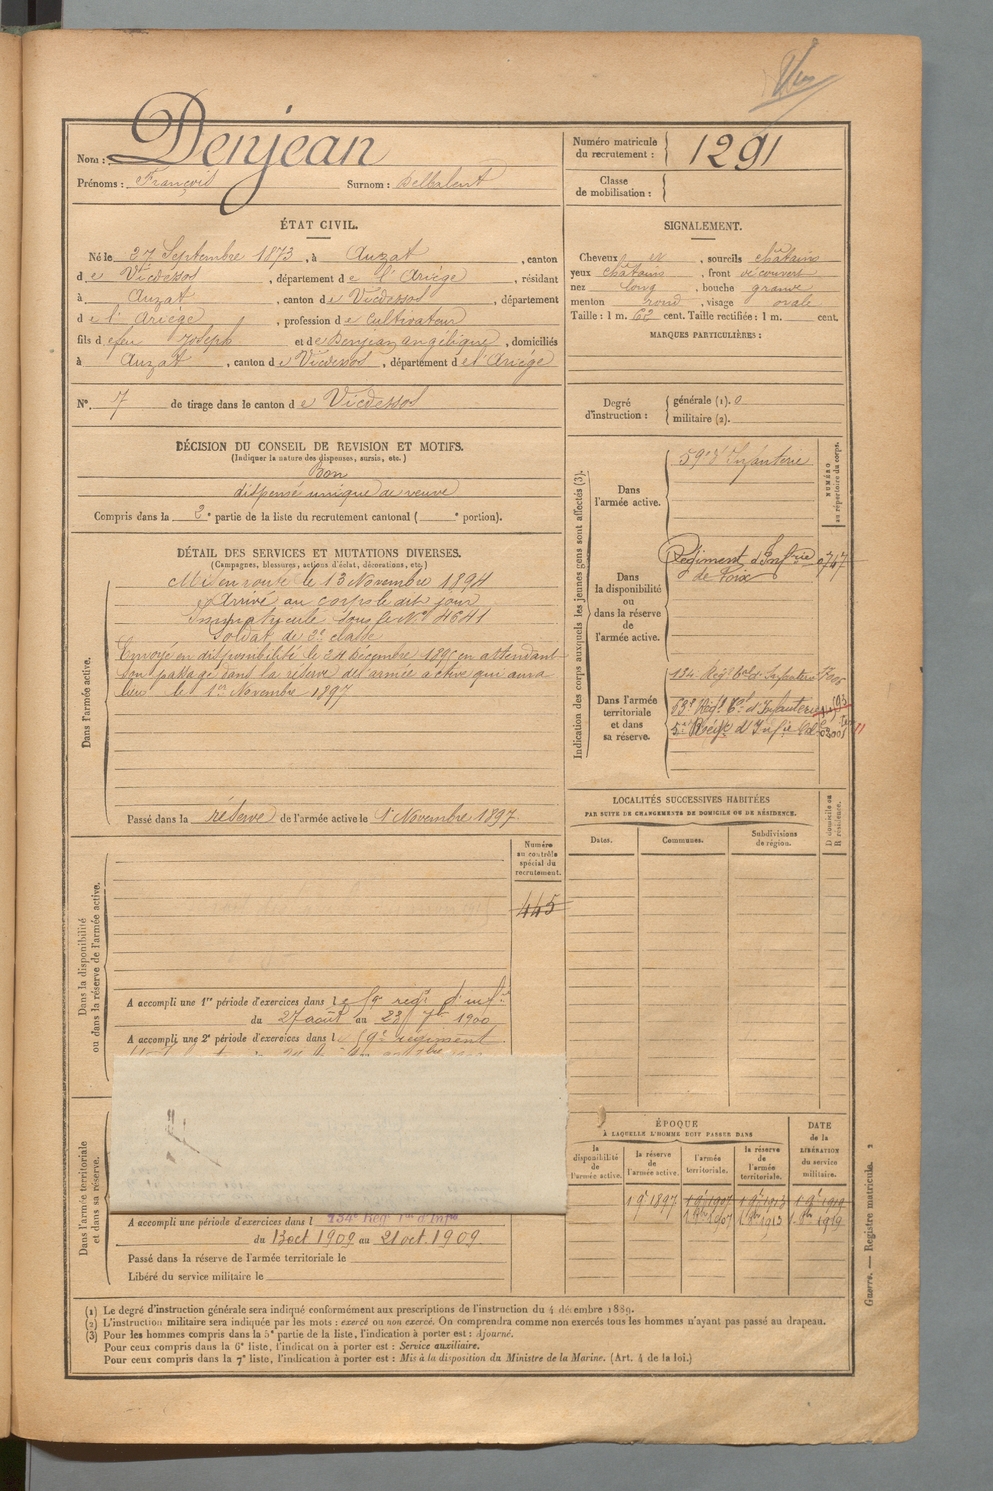 Nom : Denjean
Prénoms : François Surnom : Delbalent
Numéro matricule du recrutement : 1291
Classe de mobilisation :
ÉTAT CIVIL.
Né le 27 Septembre 1873, à Auzat, canton
de Vicdessos, département de l'Ariège, résidant
à Auzat, canton de Vicdessos, département
de l'Ariège, profession de Cultivateur
fils de feu Joseph et de Denjean angélique, domiciliés
à Auzat, canton de Vicdessos, département de l'Ariège
N° 7 de tirage dans le canton de Vicdessos
SIGNALEMENT.
Cheveux et, sourcils châtains
yeux châtains, front découvert
nez long, bouche grande
menton rond, visage ovale
Taille : 1 m. 62 cent. Taille rectifiée : 1 m. cent.
MARQUES PARTICULIÈRES :
Degré d'instruction : générale (1). 0
militaire (2).
DÉCISION DU CONSEIL DE REVISION ET MOTIFS.
(Indiquer la nature des dispenses, sursis, etc.)
Bon
dispensé unique de veuve
Compris dans la 2e partie de la liste du recrutement cantonal ( e portion).
DÉTAIL DES SERVICES ET MUTATIONS DIVERSES.
(Campagnes, blessures, actions d'éclat, décorations, etc.)
Dans l'armée active.
Mis en route le 13 Novembre 1894
Arrivé au corps le dit jour
Immatriculé sous le N° 4641
Soldat de 2e classe
Envoyé en disponibilité le 24 Décembre 1895 en attendant
son passage dans la réserve de l'armée active qui aura
lieu le 1er Novembre 1897
Passé dans la réserve de l'armée active le 1er Novembre 1897.
Indication des corps auxquels les jeunes gens sont affectés (3).
NUMÉRO au répertoire du corps.
Dans l'armée active.
59e d'Infanterie
Dans la disponibilité ou dans la réserve de l'armée active.
Régiment d'Infrie de Foix 0747
Dans l'armée territoriale et dans sa réserve.
134e Regt tal d'Infanterie
53e Regt tal d'Infanterie
LOCALITÉS SUCCESSIVES HABITÉES
PAR SUITE DE CHANGEMENTS DE DOMICILE OU DE RÉSIDENCE.
D domicile ou R résidence.
Dates. Communes. Subdivisions de région.
Dans la disponibilité ou dans la réserve de l'armée active.
Numéro au contrôle spécial du recrutement.
445
A accompli une 1re période d'exercices dans le 59e regt d'infie
du 27 août au 23 7bre 1900
A accompli une 2e période d'exercices dans le 59e régiment
Dans l'armée territoriale et dans sa réserve.
A accompli une période d'exercices dans l 134e Régt Tal d'Infie
du 13 oct 1909 au 21 oct. 1909.
Passé dans la réserve de l'armée territoriale le
Libéré du service militaire le
ÉPOQUE
À LAQUELLE L'HOMME DOIT PASSER DANS
la disponibilité de l'armée active.
la réserve de l'armée active.
l'armée territoriale.
la réserve de l'armée territoriale.
DATE de la LIBÉRATION du service militaire.
1 9e 1897 1 9e 1907 1 9e 1913 1 9e 1919
1 9bre 1907 1 9bre 1913 1. 9bre 1919
(1) Le degré d'instruction générale sera indiqué conformément aux prescriptions de l'instruction du 4 décembre 1889.
(2) L'instruction militaire sera indiquée par les mots : exercé ou non exercé. On comprendra comme non exercés tous les hommes n'ayant pas passé au drapeau.
(3) Pour les hommes compris dans la 5e partie de la liste, l'indication à porter est : Ajourné.
Pour ceux compris dans la 6e liste, l'indication à porter est : Service auxiliaire.
Pour ceux compris dans la 7e liste, l'indication à porter est : Mis à la disposition du Ministre de la Marine. (Art. 4 de la loi.)
Guerre. — Registre matricule. 2